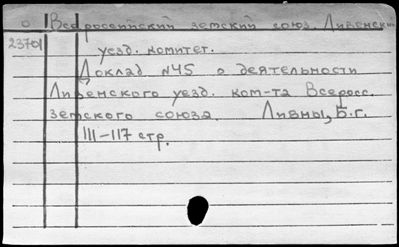 0 Всероссийский земский союз. Ливенский
23701 уезд. комитет.
Доклад №45 о деятельности
Ливенского уезд. ком-та Всеросс.
земского союза. Ливны, Б.г.
111-117 стр.